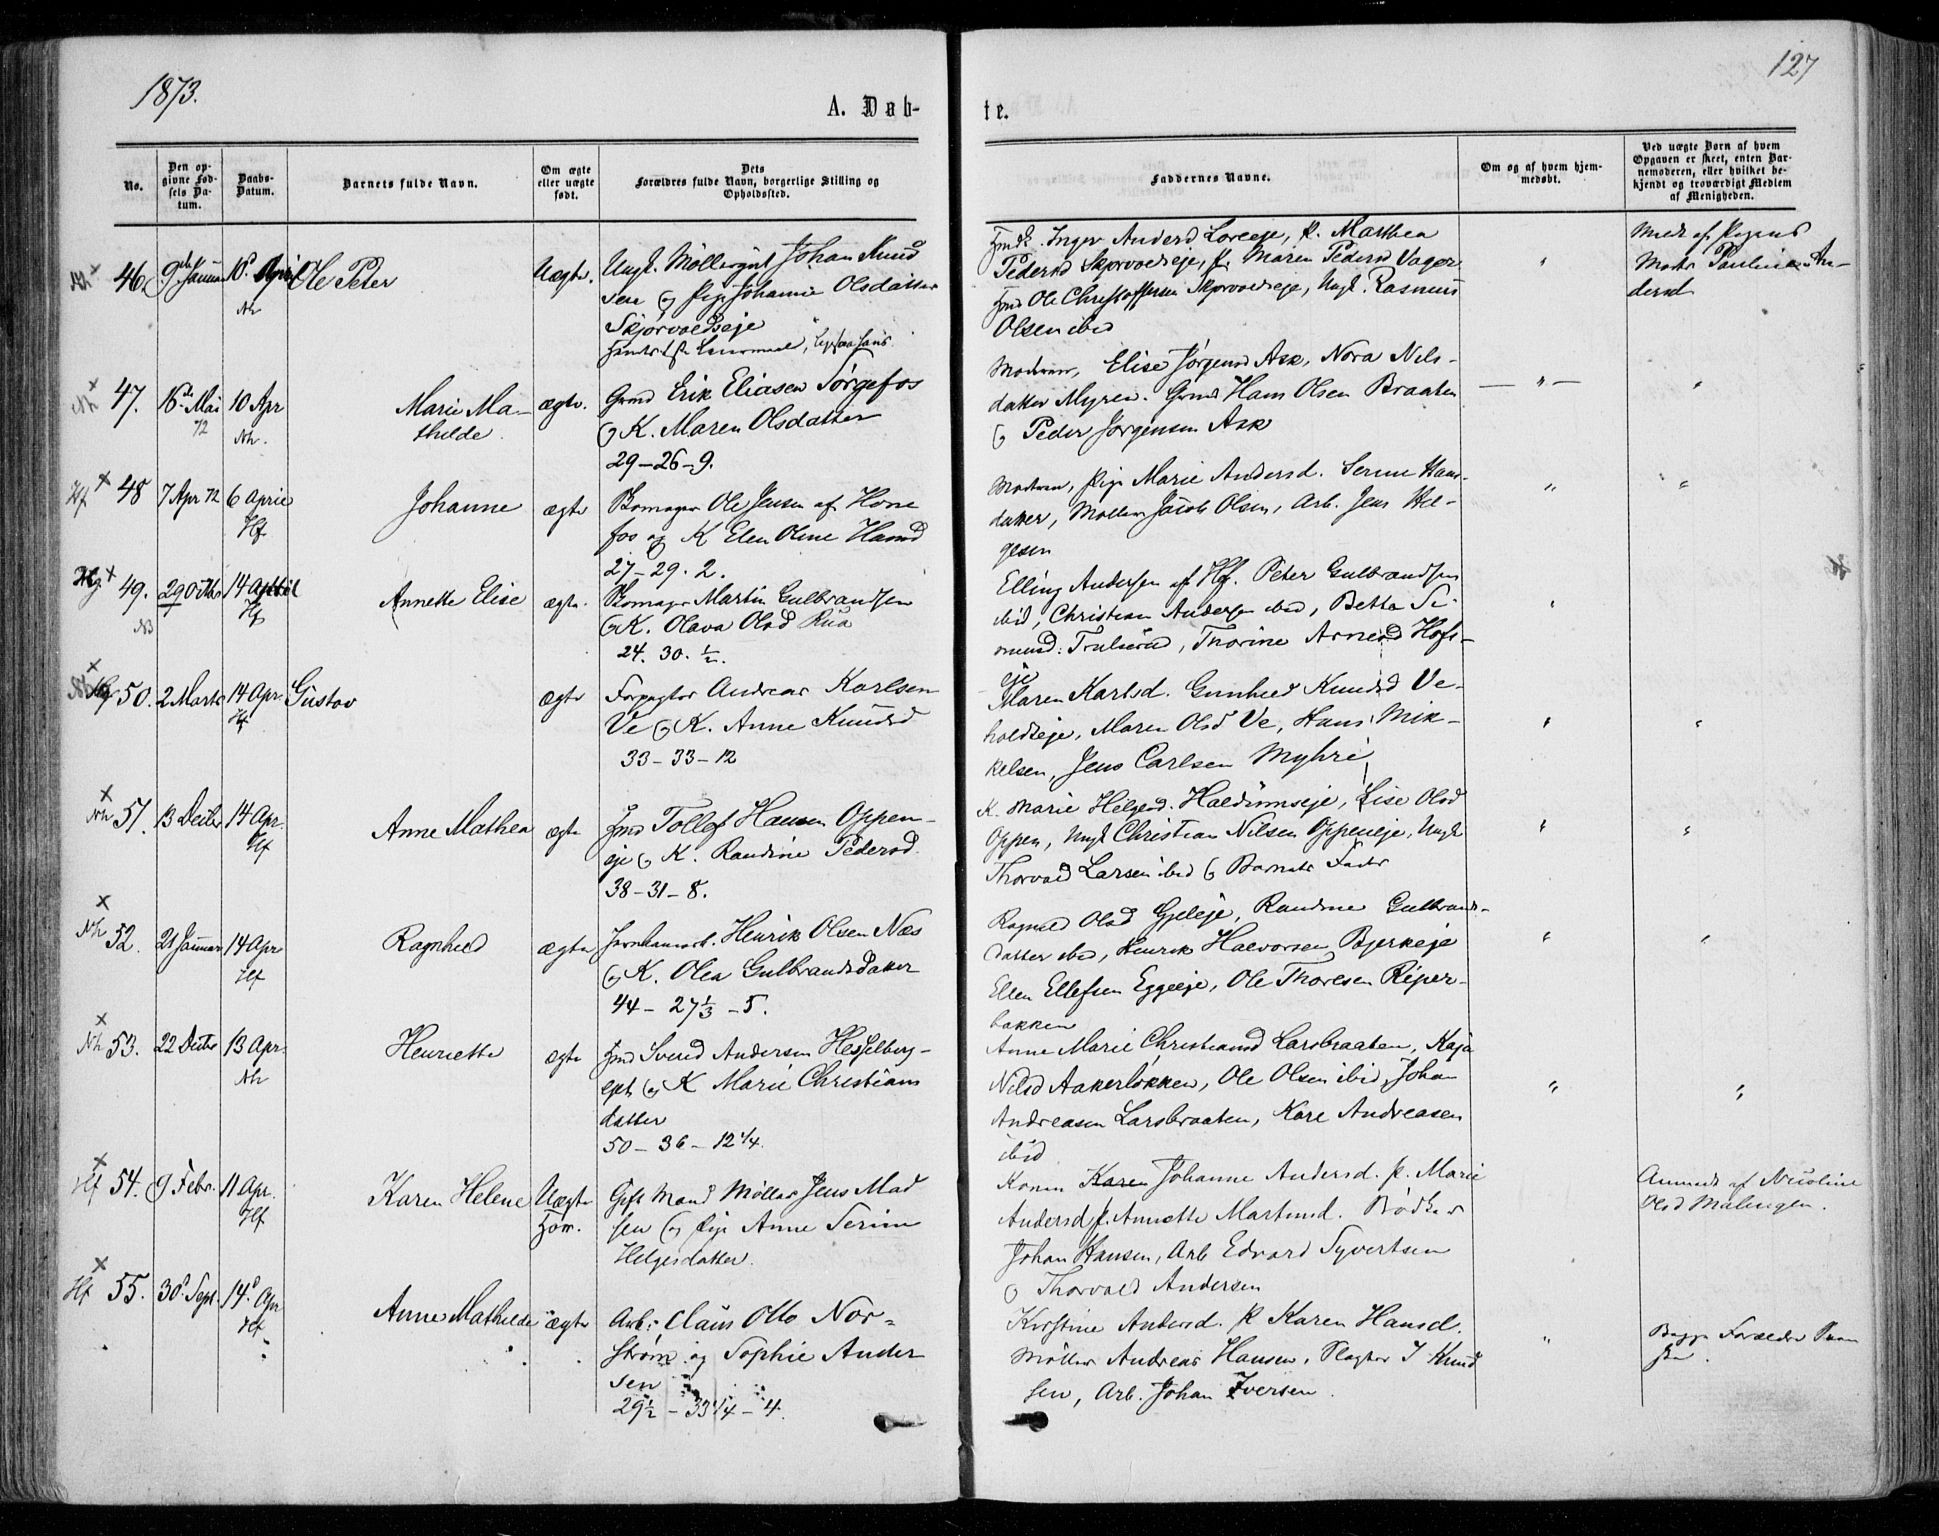 1873.
127
A. Døb-
te.
No.
Den op-
givne Fød-
sels Da-
tum.
Daabs-
Datum.
Barnets fulde Navn.
Om ægte
eller uægte
født.
Dets
Forældres fulde Navn, borgerlige Stilling og
Opholdssted.
Faddernes Navne.
Om og af hvem hjem-
medøbt.
Ved uægte Børn af hvem
Opgaven er skeet, enten Bar-
nemoderen, eller hvilket be-
kjendt og troværdigt Medlem
af Menigheden.
Nh × 46 9de Januar April Ole Peter Uægte. Ungk. Møllergut Johan Knud
Nh
sen og Pige Johanne Olsdatter
Skjørvoldseje
Fmds. Inger Andersd Loreeje, P. Marthea
Pedersd Skjørvoldseje, P. Maren Pedersd Vager
Fmd Ole Christoffersen Skjørvoldseje, Ungk. Rasmus
Olsen ibid
Meds af Pigens
Moder Pauline An-
dersd
Nh × 47. 16de Mai 72 10 Apr Nh. Marie Ma-
thilde. ægte. Grmd Erik Eliasen Sørgefos
og K. Maren Olsdatter
29-26-9.
Moderen, Elise Jørgensd Ask, Nora Nils-
datter Myren. Grmd Hans Olsen Braaten
og Peder Jørgensen Ask
Hf × 48 7 Apr 72 6 April Hf Johanne ægte Skomager Ole Jensen af Høne
fos og K Elen Oline Hansd
27-29. 2.
Moderen, Pige Marie Andersd. Serine Hans-
datter, Møller Jacob Olsen, Arb. Jens Hel-
gesen
× 49. 29 Octbr 14 April Hf Annette Elise ægte. Skomager Martin Gulbrandsen
og K. Olava Olsd Rua
24. 30. ½.
Elling Andersen af Hf. Peter Gulbrandsen
ibid, Christian Andersen ibid, Betta Si-
monsd: Trulsrud, Thorine Arnesd Hofs-
eje
× 50. 2 Marts 14 Apr. Hf Gustav ægte Forpagter Andreas Karlsen
Ve og K. Anne Knudsd
33-33-12
Maren Karlsd. Gunhild Knudsd Ve-
holdseje, Maren Olsd Ve, Hans Mik-
kelsen, Jens Carlsen Myhre
Nh × 51. 13 Decbr 14 Apr. Hf Anne Mathea ægte Fmd Tollef Hansen Oppen-
eje og K. Randine Pedersd.
38-31-8.
K. Marie Helgesd. Haldumseje, Lise Olsd
Oppen, Ungk Christian Nilsen Oppeneje, Ungk
Thorvald Larsen ibid og Barnets Fader
Nh × 52. 21 Januar 14 Apr Hf Ragnhild ægte Henrik Olsen Næs
og K. Olea Gulbrandsdatter
44- 27⅓ -5.
Ragnild Olsd Gjeleje, Randine Gulbrands-
datter ibid, Henrik Halvorsen Bjerkeje
Ellen Ellefsen Eggeeje, Ole Thoresen Riper-
bakken
Nh × 53. 22 Decbr 13 Apr. Nh Henriette ægte Fmd Svend Andersen Hesselberg-
ejet og K Marie Christians
datter
50-36-12¼.
Anne Marie Christiansd Larsbraaten, Kaja
Nilsd Aakerløkken, Ole Olsen ibid, Johan
Andreasen Larsbraaten, Kare Andreasen
ibid
Hf × 54. 9 Febr. 11 Apr. Hf Karen Helene Uægte
Hor. Gift Mand Møller Jens Mad
sen og Pige Anne Serine
Helgesdatter.
Konen Karen Johanne Andersd. P. Marie
Andersd P. Annette Martinsd. Bødker
Johan Hansen, Arb Edvard Syvertsen
og Thorvald Andersen
Anmeldt af Nicoline
Olsd Malingen.
Hf × 55. 30 Sept. 14 Apr Hf Anne Mathilde ægte Arb. Claus Otto Nor-
strøm og Sophie Ander
sen
29½ - 33¼ - 4.
Kirstine Andersd. P Karen Hansd.
Møller Andreas Hansen, Slagter I Knud
sen, Arb. Johan Iversen.
Begge Forældre